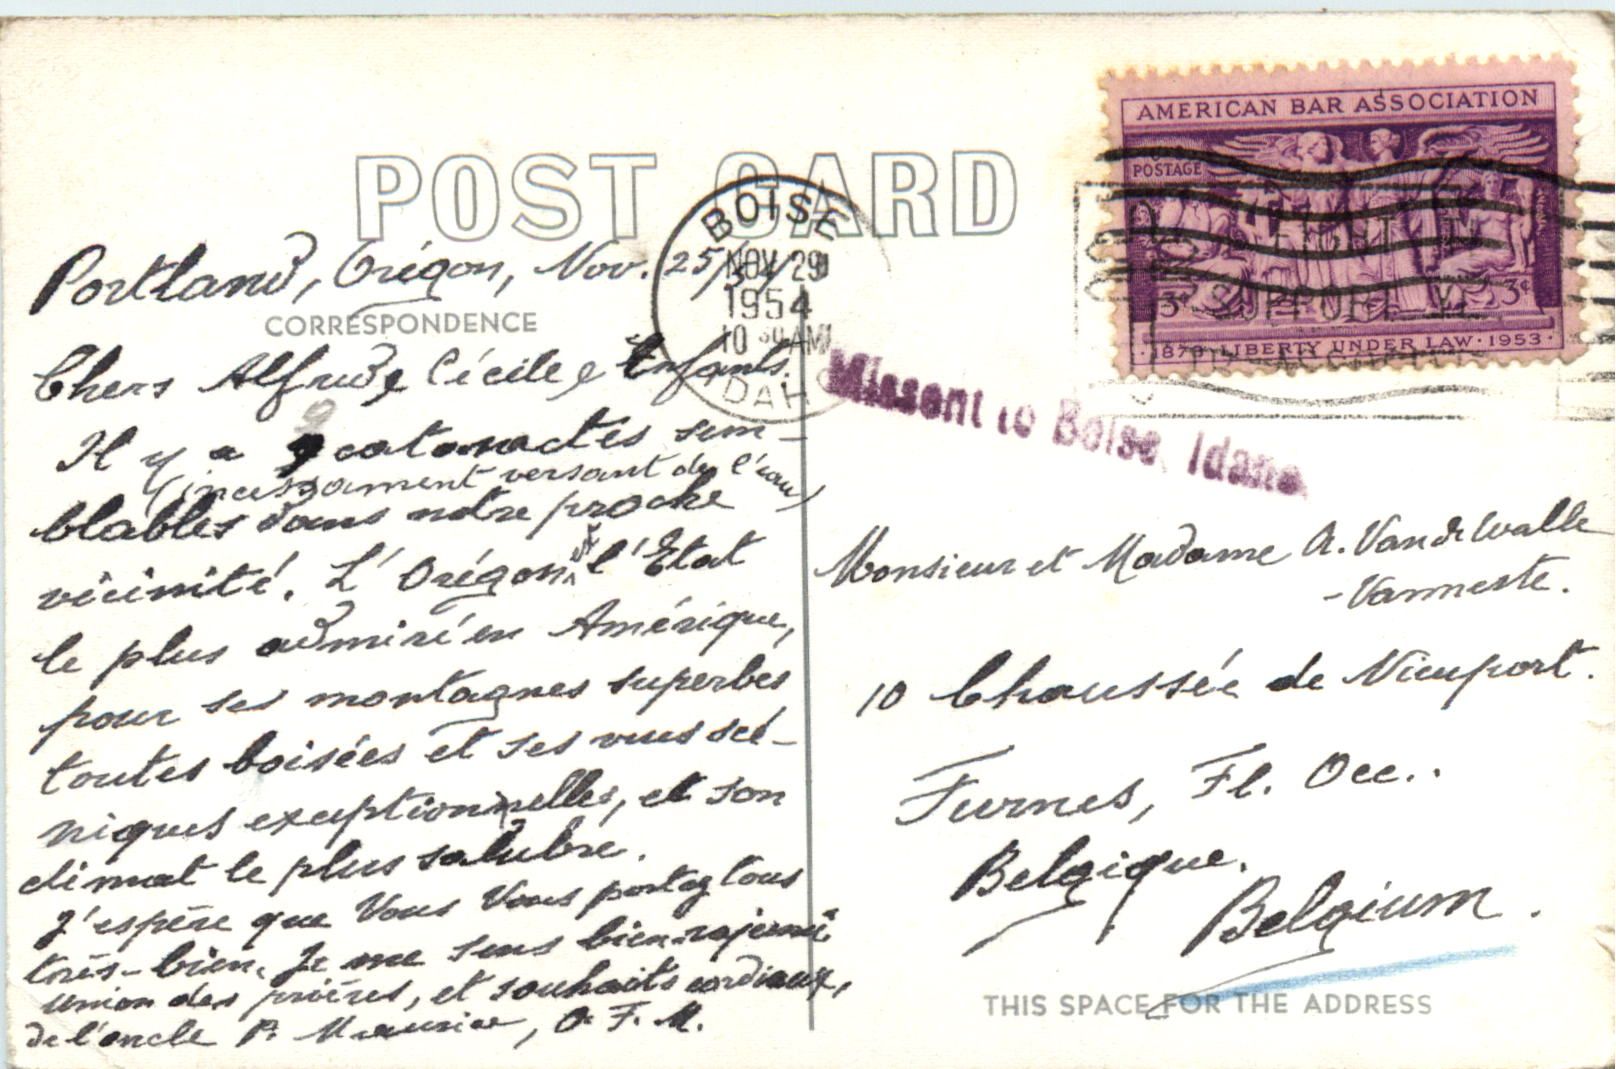 POST CARD
AMERICAN BAR ASSOCIATION
U.S. POSTAGE
3¢ 3¢
1878 · LIBERTY UNDER LAW · 1953
BOISE
NOV 29
1954
10 30 AM
IDAHO
Missent to Boise, Idaho
CORRESPONDENCE
Portland, Orégon, Nov. 25/54
Chers Alfred, Cécile & Enfants.
Il y a 9 cataractes sem-
(incessament versant de l'eau)
blables dans notre proche
vicinité. L'Orégon est l'Etat
le plus admiré en Amérique,
pour ses montagnes superbes
toutes boisées et ses vues scé-
niques exceptionnelles, et son
climat le plus salubre.
J'espère que Vous Vous portez tous
très-bien. Je me sens bien rajeuni
union des prières, et souhaits cordiaux,
de l'oncle P. Maurice, O.F.M.
Monsieur et Madame A. VandeWalle
-Vanneste.
10 Chaussée de Nieuport.
Furnes, Fl. Occ..
Belgique.
Belgium.
THIS SPACE FOR THE ADDRESS